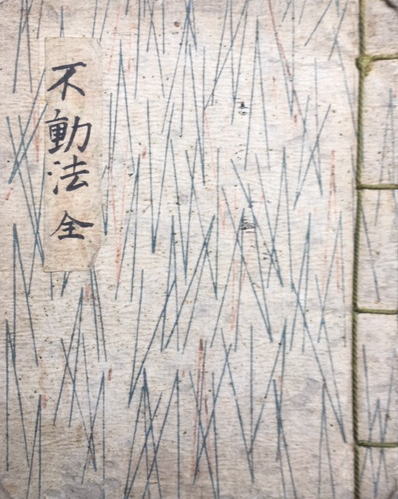 不動法 全